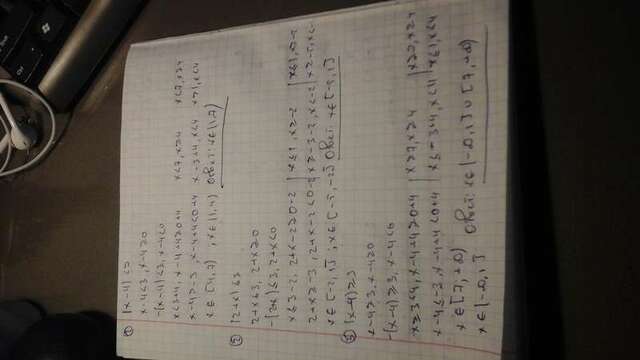 ① |x-4| <3
x-4<3, x-4≥0
-(x-4)≤3, x-4<0
x<3+4, x-4+4≥0+4 x<7, x≥4 x<7, x≥4
x-4>-3, x-4+4<0+4 x>-3+4, x<4 x>1, x<4
x∈[4,7) ; x∈(1,4) Ответ: x∈(1,7)
② |2+x|≤3
2+x≤3, 2+x≥0
-(2+x)≤3, 2+x<0
x≤3-2, 2+x-2≥0-2 | x≤1, x≥-2 | x≤1, x≥-2
2+x≥-3, 2+x-2<0-2 | x≥-3-2, x<-2 | x≥-5, x<-2
x∈[-2,1] ; x∈[-5,-2] Ответ: x∈[-5,1]
③ |x-4|≥3
x-4≥3, x-4≥0
-(x-4)≥3, x-4<0
x≥3+4, x-4+4≥0+4 | x≥7, x≥4 | x≥7, x≥4
x-4≤-3, x-4+4<0+4 | x≤-3+4, x<4 | x≤1, x<4
x∈[7,+∞)
Ответ: x∈(-∞,1]∪[7,+∞)
x∈(-∞,1]
Ctrl
Alt